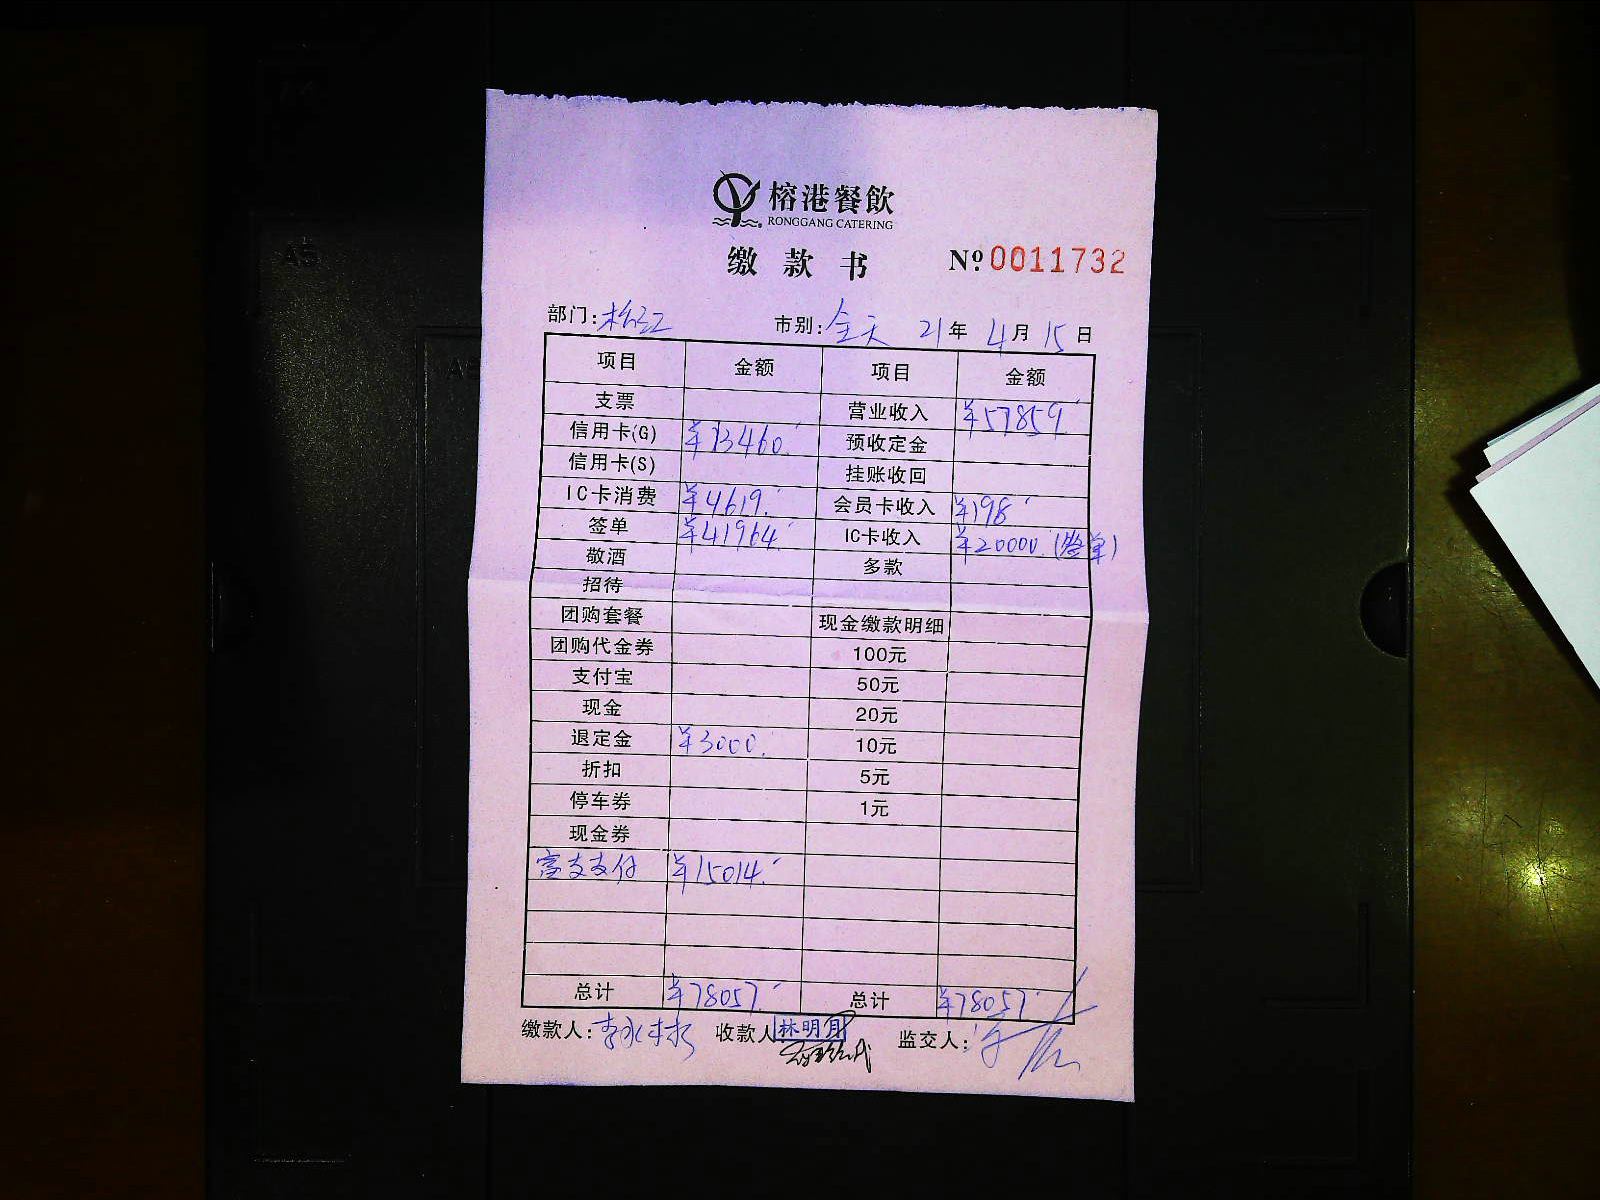 榕港餐飲
RONGGANG CATERING
缴款书 Nº 0011732
部门: 松江 市别: 全天 21年 4月 15日
项目 金额 项目 金额
支票 营业收入 ¥57859.
信用卡(G) ¥13460. 预收定金
信用卡(S) 挂账收回
IC卡消费 ¥4619. 会员卡收入 ¥198
签单 ¥41964. IC卡收入 ¥20000.(签单)
敬酒 多款
招待
团购套餐 现金缴款明细
团购代金券 100元
支付宝 50元
现金 20元
退定金 ¥3000. 10元
折扣 5元
停车券 1元
现金券
富友支付 ¥15014.
总计 ¥78057. 总计 ¥78057.
缴款人: 收款人 林明月 监交人:
A5